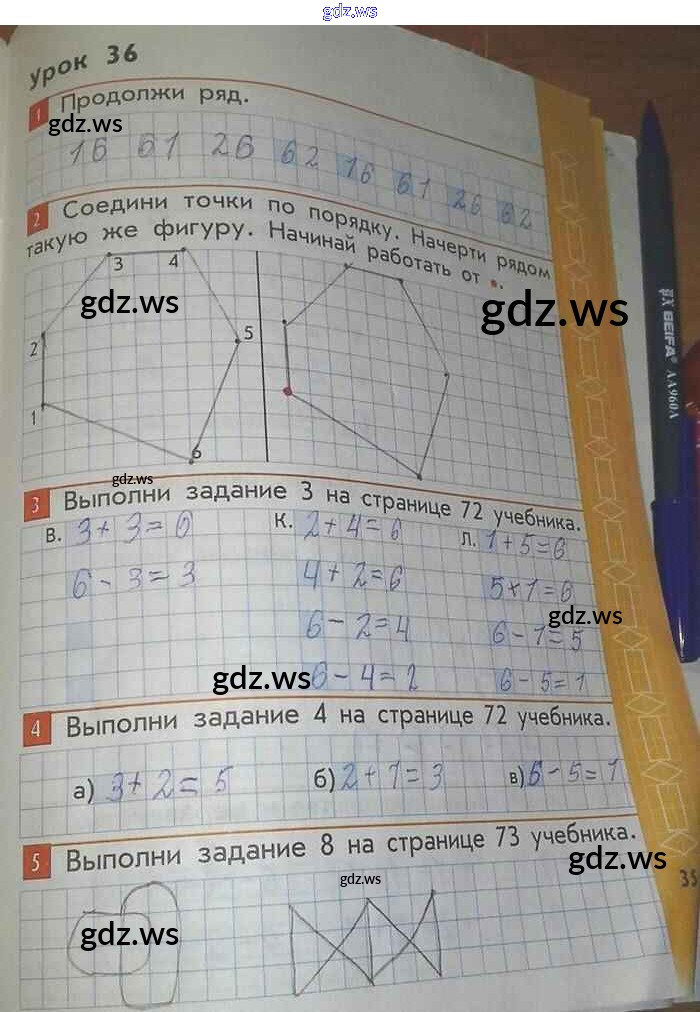 gdz.ws
Урок 36
1 Продолжи ряд.
gdz.ws
16 61 26 62 16 61 26 62
2 Соедини точки по порядку. Начерти рядом
такую же фигуру. Начинай работать от .
3 4
gdz.ws
gdz.ws
2 5
1
6
BEIFA AA960A
gdz.ws
3 Выполни задание 3 на странице 72 учебника.
В. 3+3=6 К. 2+4=6 Л. 1+5=6
6-3=3 4+2=6 5+1=6
gdz.ws
6-2=4 6-1=5
gdz.ws
6-4=2 6-5=1
4 Выполни задание 4 на странице 72 учебника.
а) 3+2=5 б) 2+1=3 в) 6-5=1
5 Выполни задание 8 на странице 73 учебника.
gdz.ws
35
gdz.ws
gdz.ws